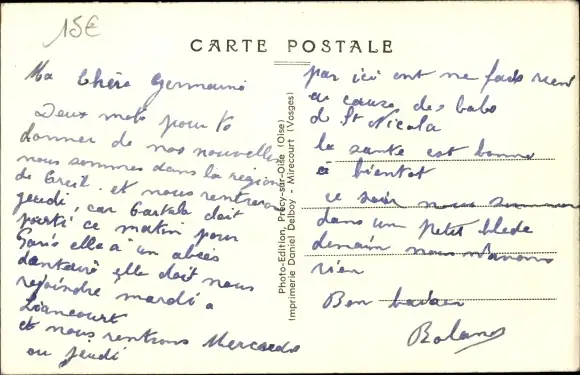 15€
CARTE POSTALE
Ma Chère Germaine
Deux mots pour te
donner de nos nouvelles
nous sommes dans la région
de Creil. et nous rentrerons
jeudi, car doit
parti ce matin pour
Paris elle a un abcès
dentaire elle doit nous
rejoindre mardi a
Liancourt
et nous rentrons Mercredi
ou jeudi
Photo-Edition, Précy-sur-Oise (Oise)
Imprimerie Daniel Delboy - Mirecourt (Vosges)
par ici ont ne fait rien
au cause des
de St Nicola
la sante est bonne
à bientot
ce soir nous sommes
dans un petit blede
demain nous n'avons
rien
Bon
Roland